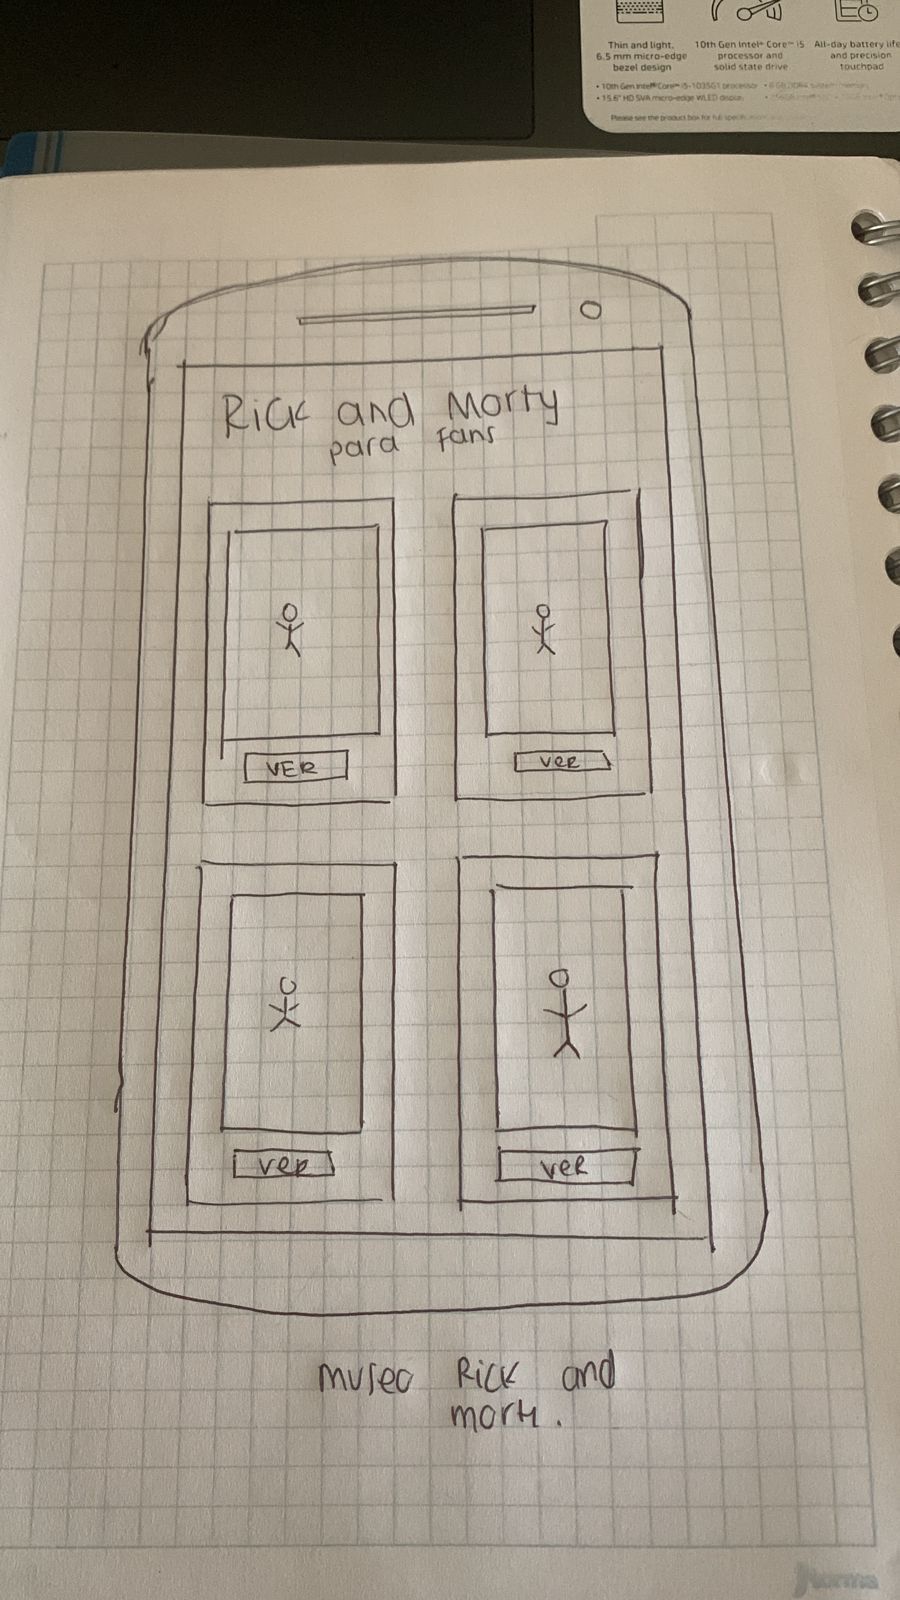 Thin and light,
6.5 mm micro-edge
bezel design
10th Gen Intel® Core™ i5
processor and
solid state drive
All-day battery life
and precision
touchpad
• 10th Gen Intel® Core™ i5-1035G1 processor
• 15.6" HD SVA micro-edge WLED display
Please see the product box for full
Rick and Morty
para fans
VER
ver
ver
ver
museo Rick and
morty.
Norma